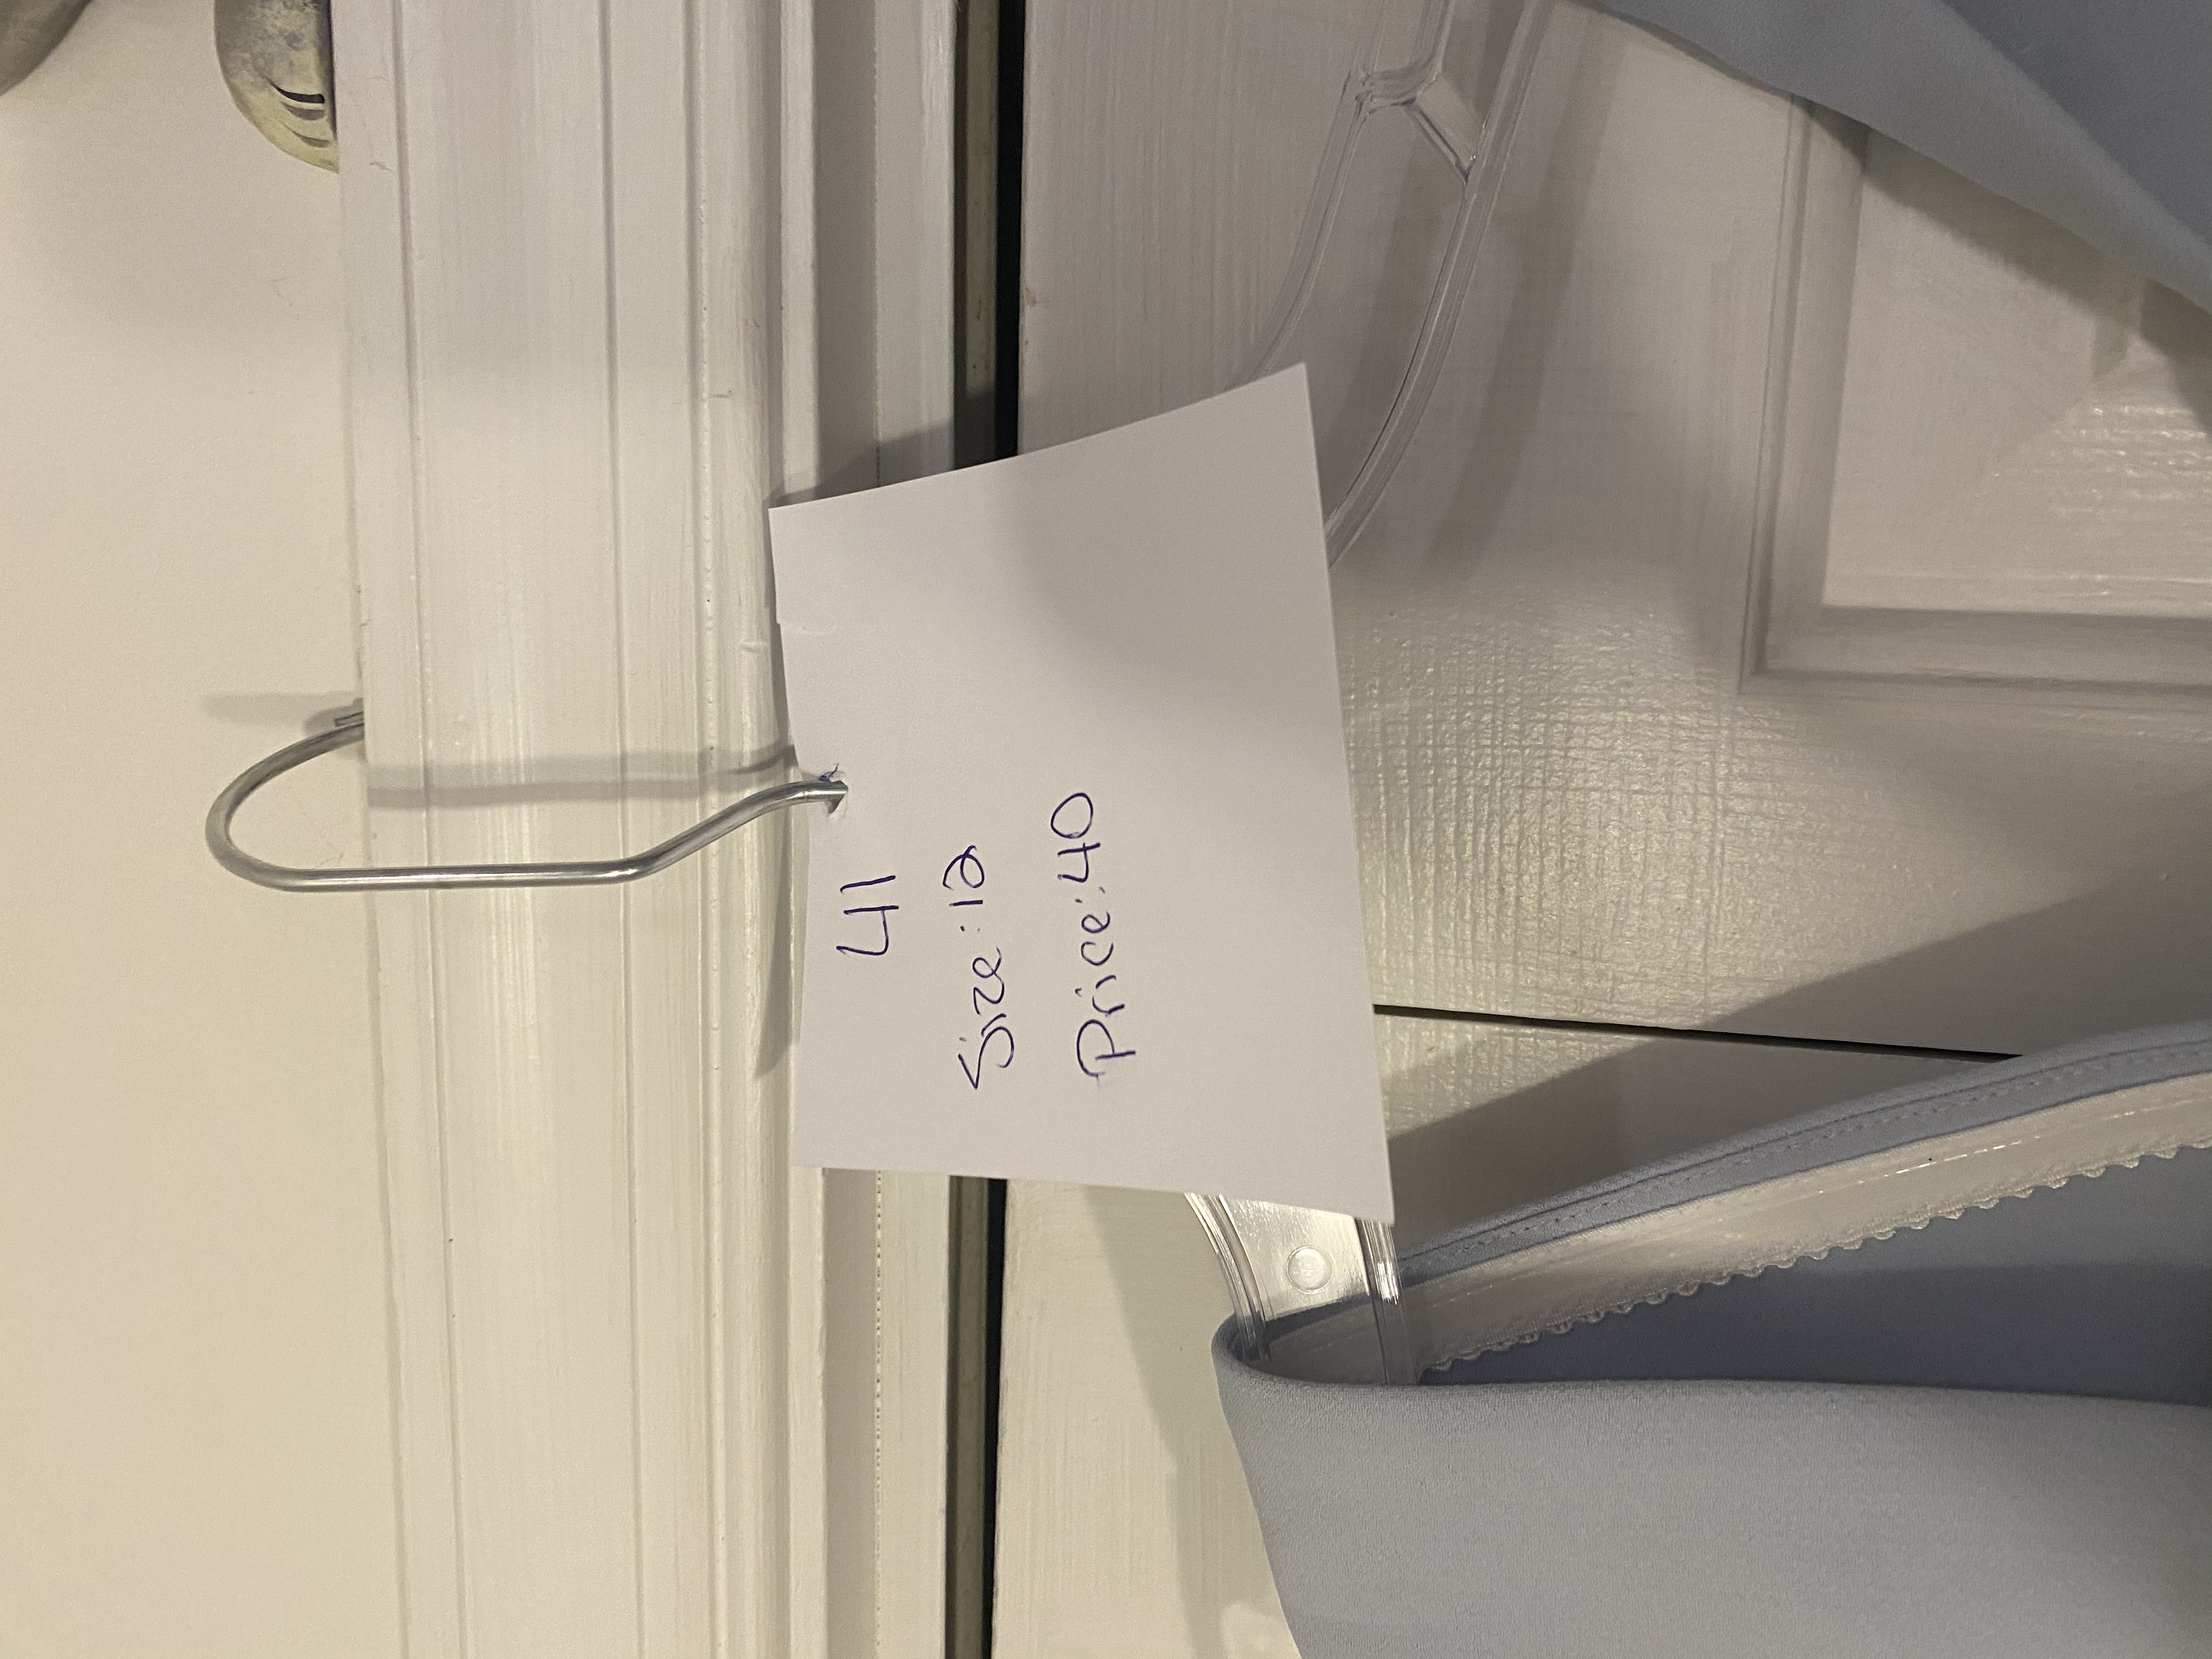 41
Size:12
Price:40